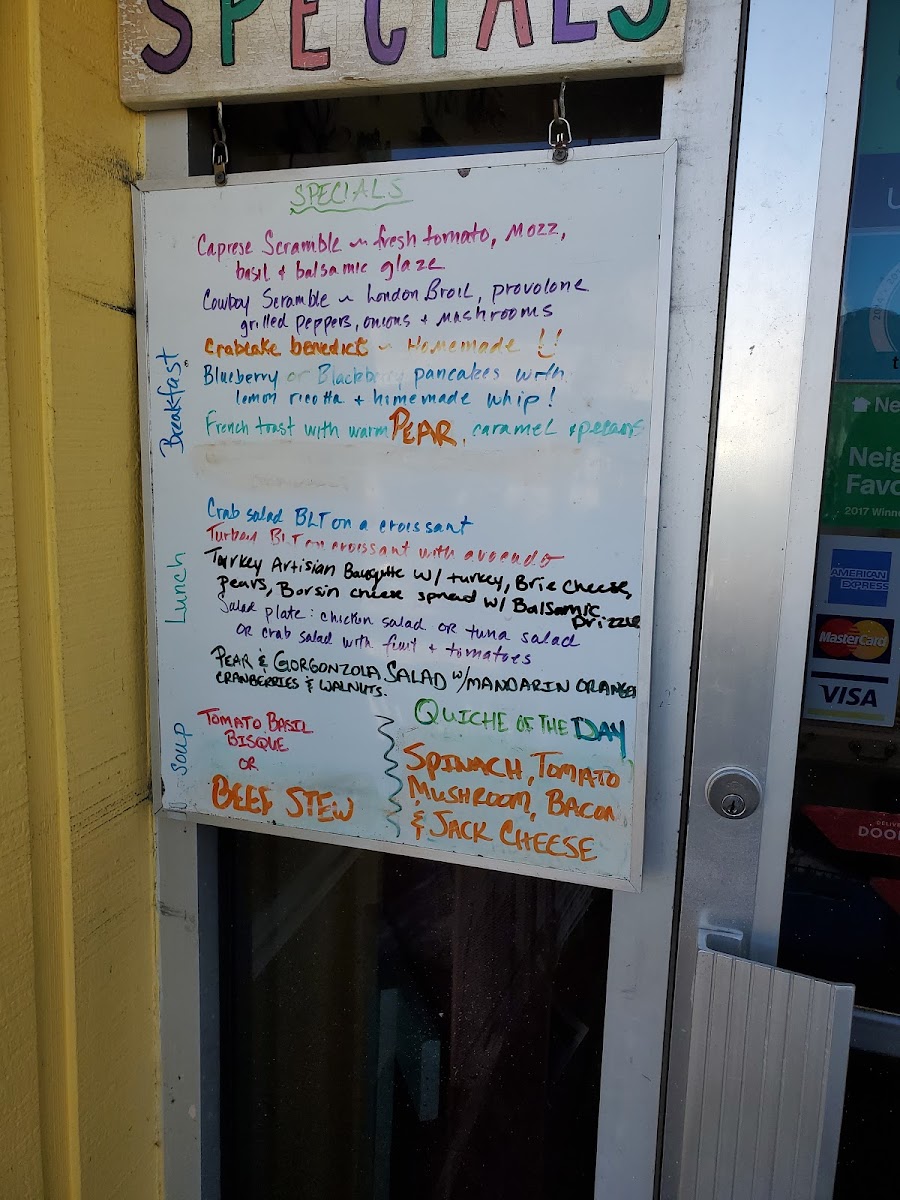 SPECIALS
SPECIALS
Breakfast
Caprese Scramble ~ fresh tomato, Mozz,
basil & balsamic glaze
Cowboy Scramble ~ London Broil, provolone
grilled peppers, onions + mushrooms
Crabcake benedict ~ Homemade !!
Blueberry or Blackberry pancakes with
lemon ricotta + homemade whip!
French toast with warm PEAR, caramel & pecans
Lunch
Crab salad BLT on a croissant
Turkey BLT on croissant with avocado
Turkey Artisian Baugette w/ turkey, Brie Cheese,
pears, Borsin cheese spread w/ Balsamic
Drizzle
Salad plate: chicken salad OR tuna salad
OR crab salad with fruit + tomatoes
PEAR & GORGONZOLA SALAD w/ MANDARIN ORANGES
CRANBERRIES & WALNUTS.
Soup
TOMATO BASIL
BISQUE
OR
BEEF STEW
QUICHE OF THE DAY
SPINACH, TOMATO
MUSHROOM, BACON
& JACK CHEESE
Ne
Neig
Favo
2017 Winne
AMERICAN
EXPRESS
MasterCard
VISA
DELIV
DOOR